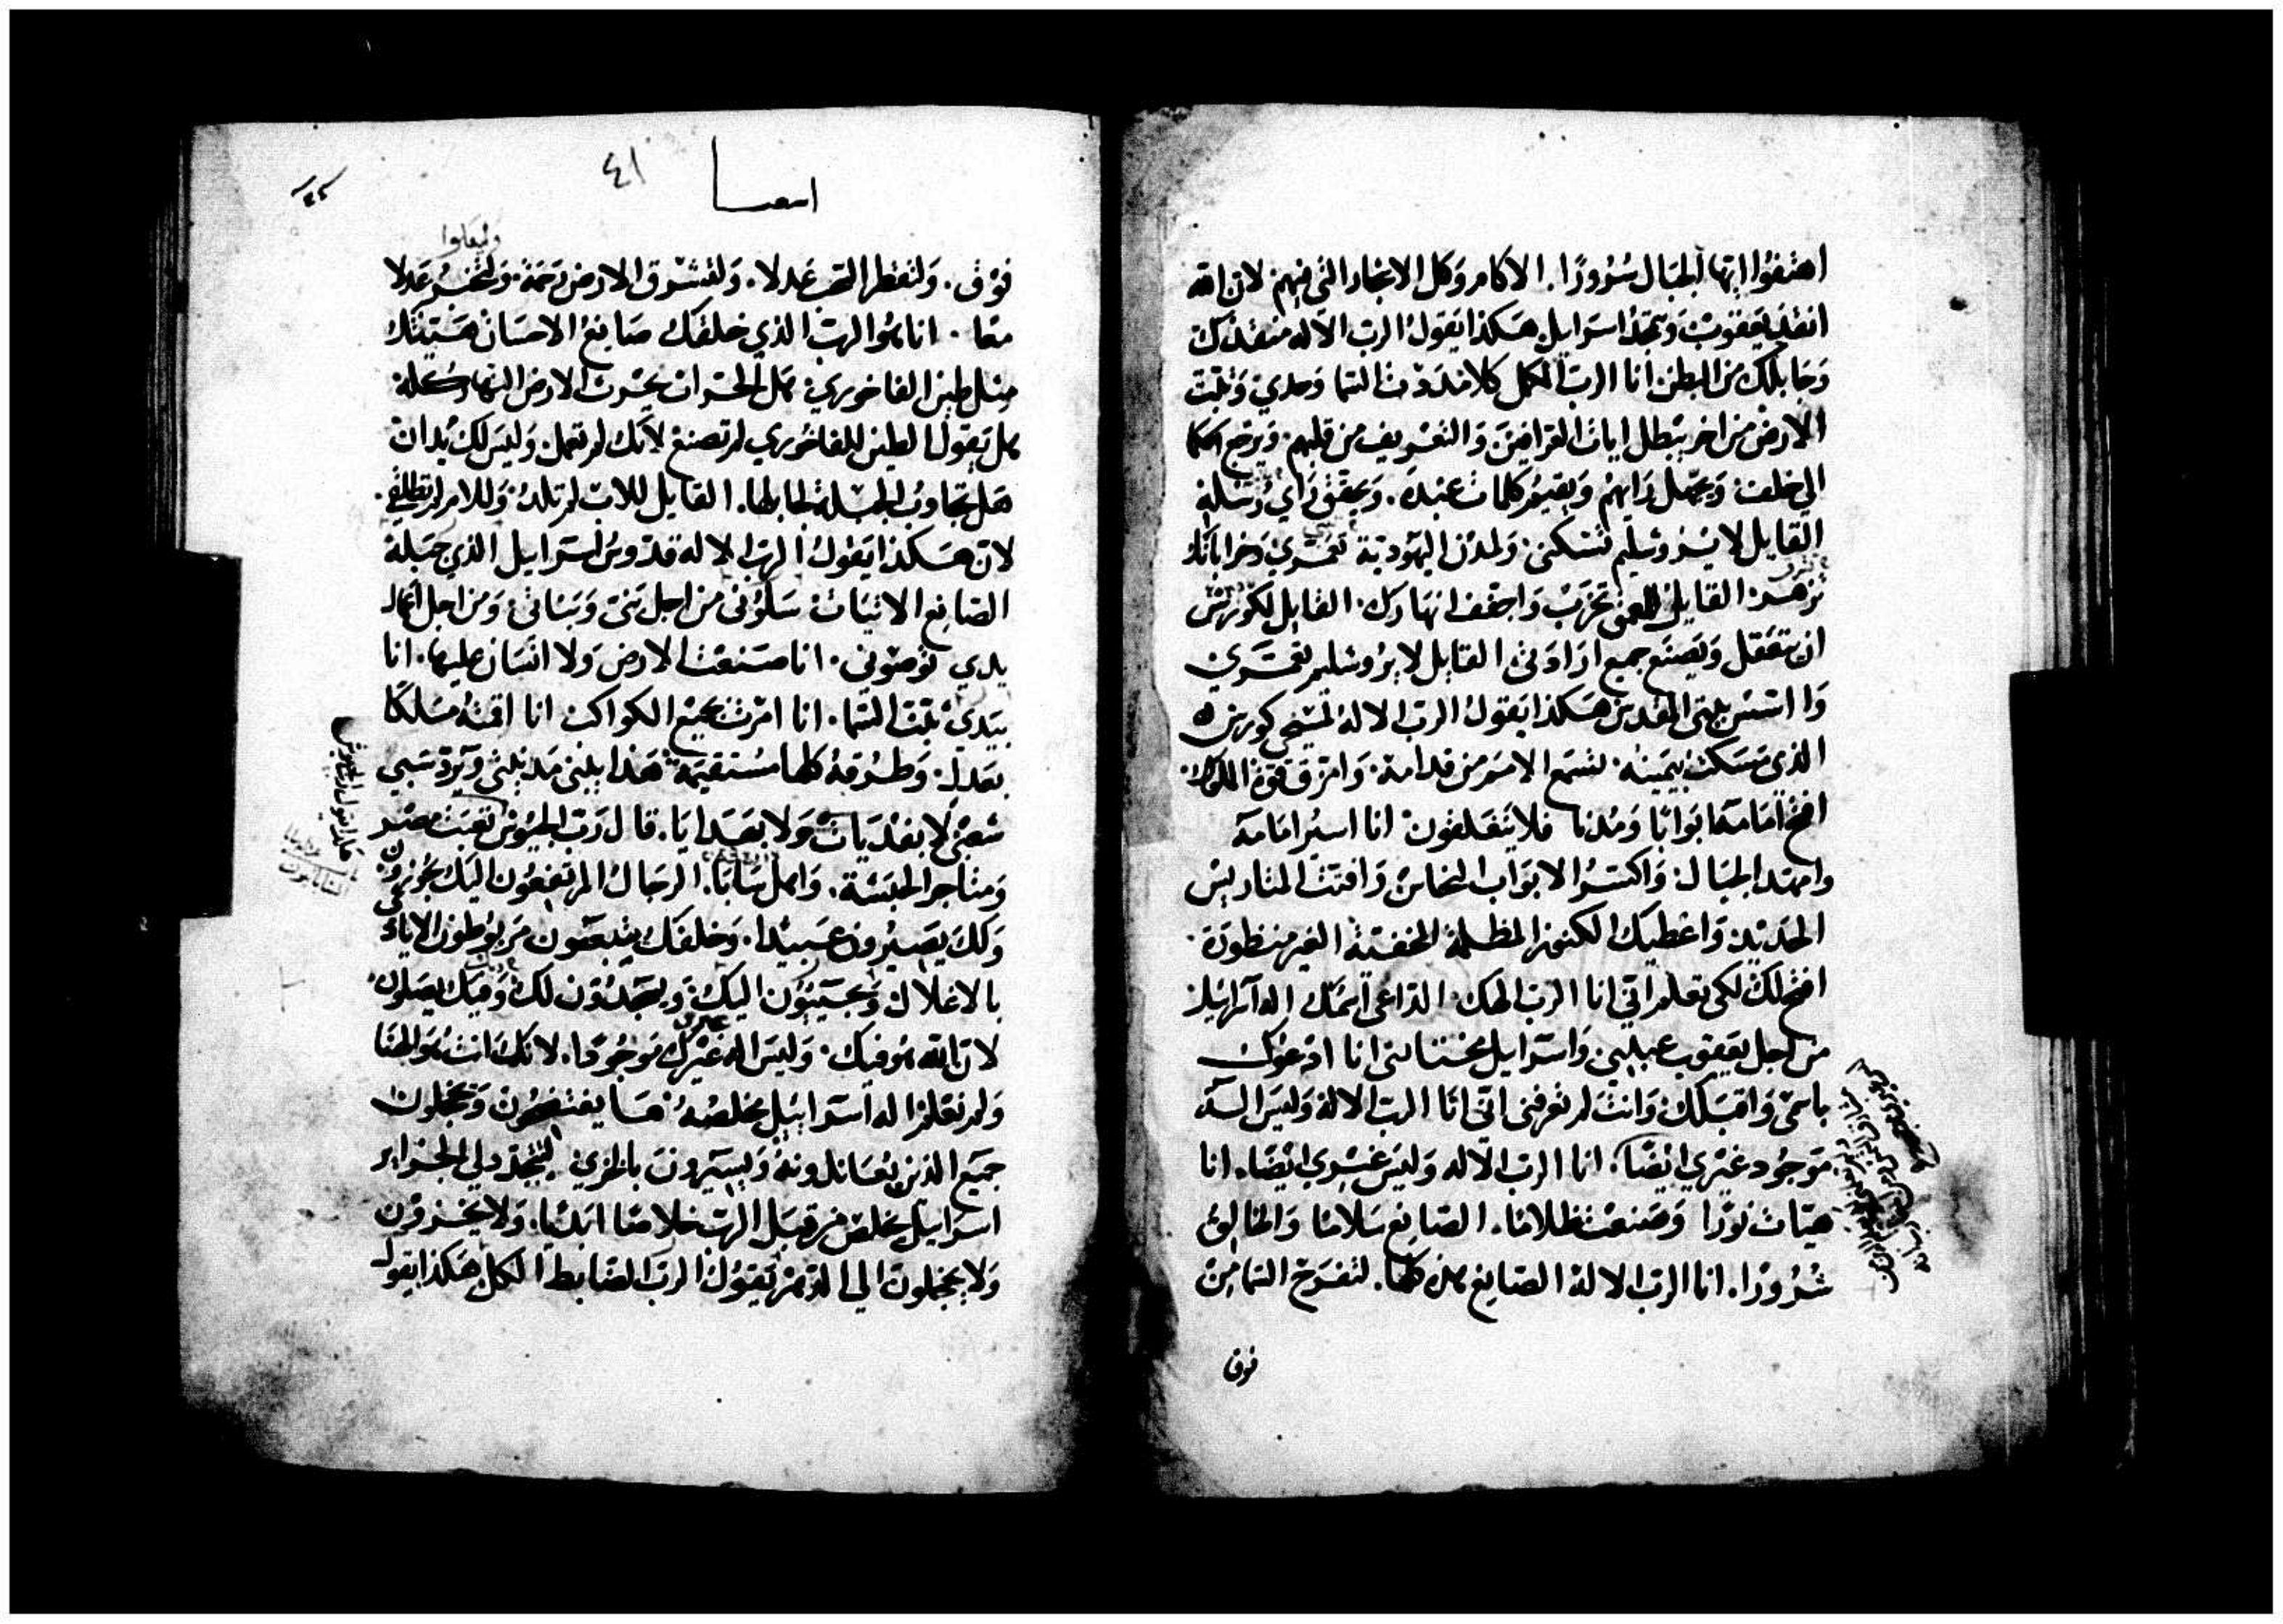 اهتفوا ايتها الجبال سرورًا. الاكام وكل الاشجار التي فيهم لان الله
انقذ يعقوب وتمجد اسرايل هكذا يقول الرب الاله منقذك
وجابلك من البطن انا الرب المكمل كلا مددت السما وحدي وثبت
الارض من اخر يبطل ايات العرافين والتعريف من قلبهم ويرجع الحكما
الي خلف ويجهل رايهم ويقيم كلمات عبده. ويحقق راي رسله
القايل لايروشليم تسكنين ولمدن اليهودية تعمري وخراباتك
تزهر القايل للعمق تخرب واجفف انهارك. القايل لكورش
ان يتعقل ويصنع جميع اراداتي القايل لايروشليم تعمرين
وا اسس بيتي المقدس هكذا يقول الرب الاله لمسيحي كورش
الذي مسكت بيمينه. لتسمع الامم من قدامه. وامزق قوة الملوك.
افتح امامه ابوابًا ومدنا فلا تنغلقون انا اسير امامه
وامهد الجبال. واكسر الابواب النحاس وافتت المتاريس
الحديد واعطيك الكنوز المظلمة المخفية الغير منظورة.
افتح لك لكي تعلم اني انا الرب الهك الداعي اسمك اله اسرايل
من اجل يعقوب عبدي واسرايل مختاري انا ادعوك
باسمي واقبلك وانت لم تعرفني اني انا الرب الاله وليس اله
موجود غيري ايضًا. انا الرب الاله وليس غيري ايضًا. انا
هيات نورًا وصنعت ظلامًا. الصانع سلامًا والخالق
شرورًا. انا الرب الاله الصانع هذه كلها. لتفرح السما من
فوق
اسعيا
٤١
وليهطلوا
فوق. ولتقطر السحب عدلا. ولتشرق الارض رحمة. وعدلا
معا. انا هو الرب الذي خلقك صانع الاحسان هيئتك
مثل طين الفاخوري هل الحراث يحرث الارض النهار كله
هل يقول الطين للفاخوري لم تصنع لانك لم تعمل وليس لك يدان
هل تجاوب الجبلة لجابلها. القايل للاب لم تلد. وللام لم تطلقي.
لان هكذا يقول الرب الاله قدوس اسرايل الذي جبله
الصانع الاتيات سلوني من اجل بني وبناتي ومن اجل اعمال
يدي توصوني. انا صنعت الارض ولا انسان عليها. انا
بيدي ثبت السما. انا امرت جميع الكواكب انا اقمته مسلكًا
بعدل. وطرقه كلها مستقيمة هذا يبني مدينتي ويرد سبي
شعبي لا بفديات ولا بهدايا. قال رب الجيوش تعبت مصر
ومتاجر الحبشة. واهل سابا. الرجال المرتفعون اليك يجوزون
ولك يصيرون عبيدا. وخلفك يتبعون مربوطون الايادي
بالاغلال ويجيبون اليك ويسجدون لك وفيك يصلون
لان الله هو فيك. وليس اله غيرك موجودا. لانك انت هو الهنا
ولم نعلم اله اسرايل مخلصه. يفتضحون ويخجلون
جميع الذين يعاندونه ويسيرون بالخزي لتتجدد لي الجزاير
اسرايل يخلص من قبل الرب خلاصا ابديا. ولا يخزون
ولا يخجلون الي الابد يقول الرب الضابط الكل هكذا يقول